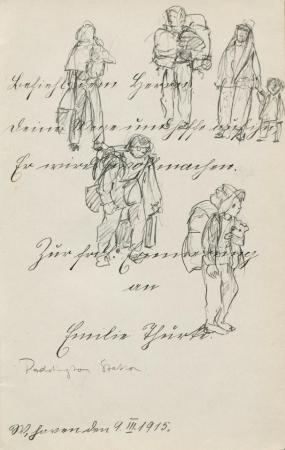 Befiehl dem Herrn
deine Wege und hoffe auf ihn
Er wird machen.
Zur Erinnerung
an
Emilie
Paddington Station
W.haven den 9. III. 1915.